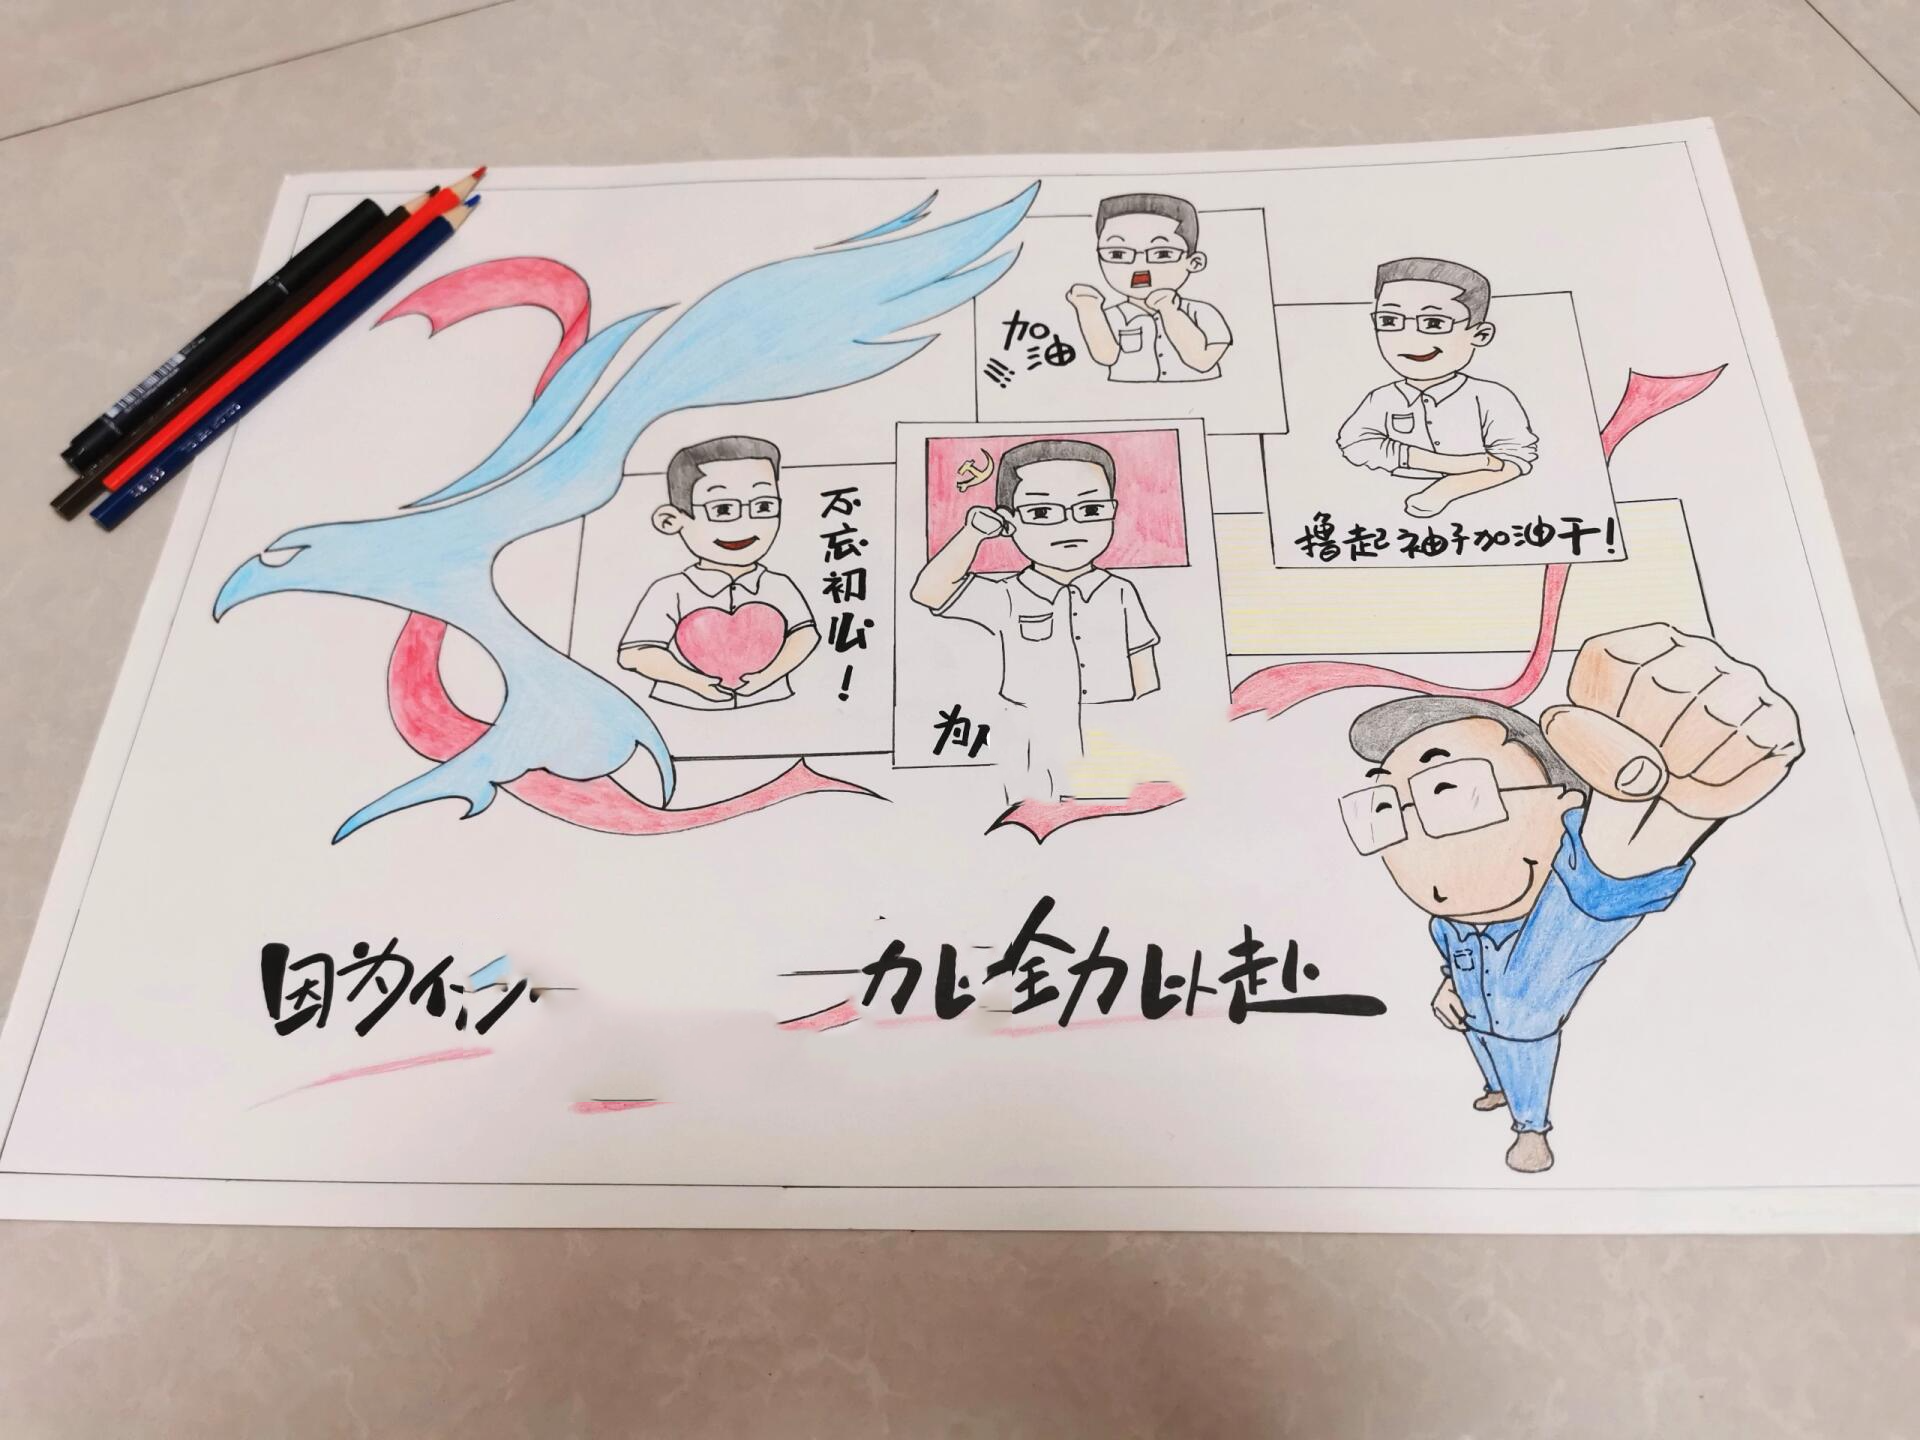 加油
不忘初心!
撸起袖子加油干!
为
因为
全力以赴